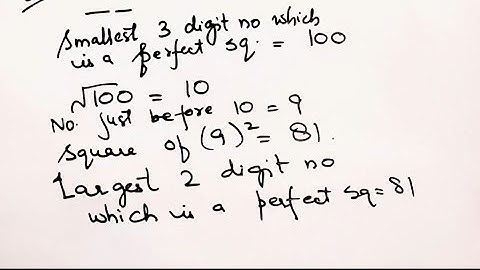 Smallest 3 digit no which
is a perfect sq. = 100
√100 = 10
No. just before 10 = 9
square of (9)² = 81.
Largest 2 digit no
which is a perfect sq = 81